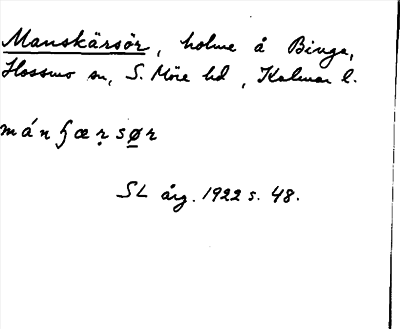 Manskärsör, holme å Binga,
Hossmo sn, S. Möre hd, Kalmar l.
mánʃæṛsø̱r
SL årg. 1922 s. 48.